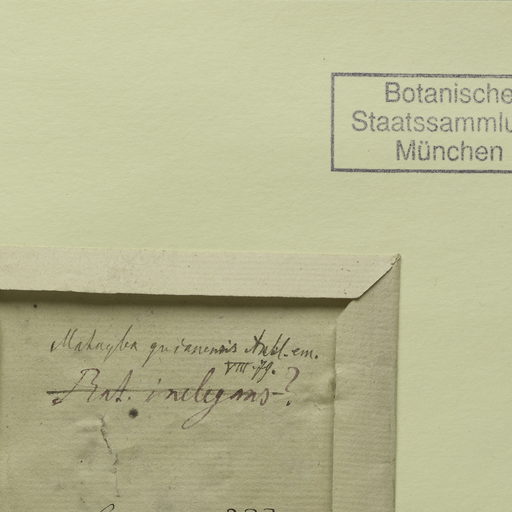 Botanische
Staatssammlu
München
Matayba guianensis Aubl. em.
VIII. 79.
Rat. inelegans?